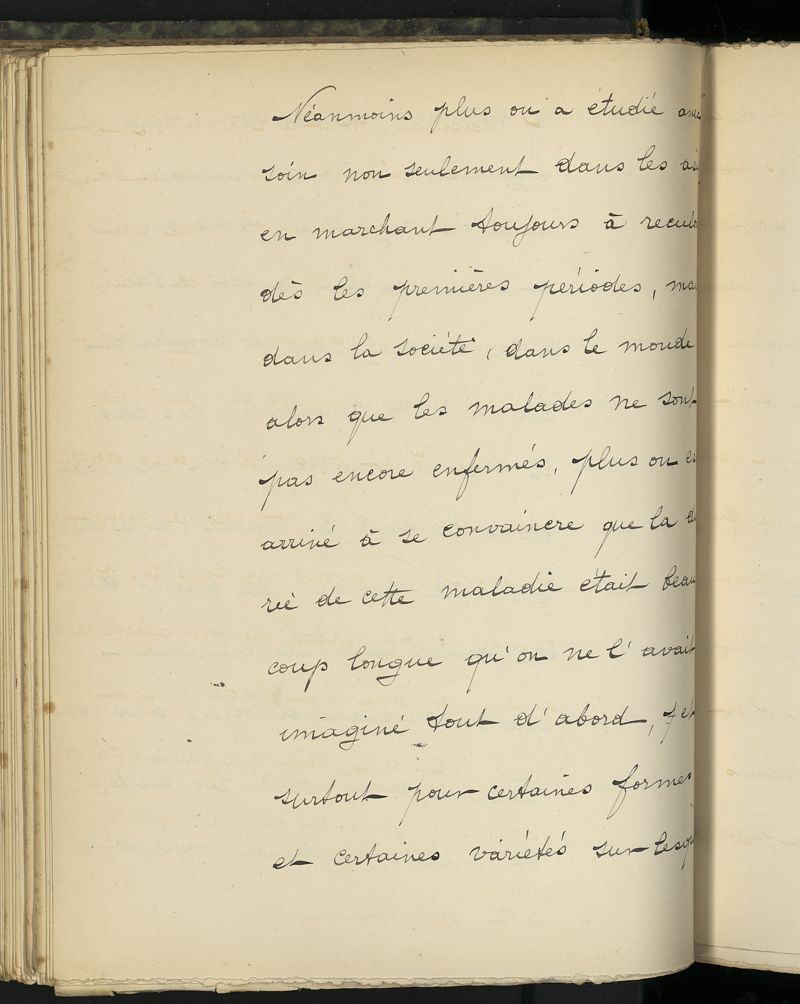 Néanmoins plus on a étudié avec
soin non seulement dans les
en marchant toujours à recul
dès les premières périodes, mai
dans la société, dans le monde
alors que les malades ne sont
pas encore enfermés, plus on es
arrivé à se convaincre que la
reé de cette maladie était beau
coup longue qu'on ne l'avait
imaginé tout d'abord, et
surtout pour certaines formes
et certaines variétés sur lesq